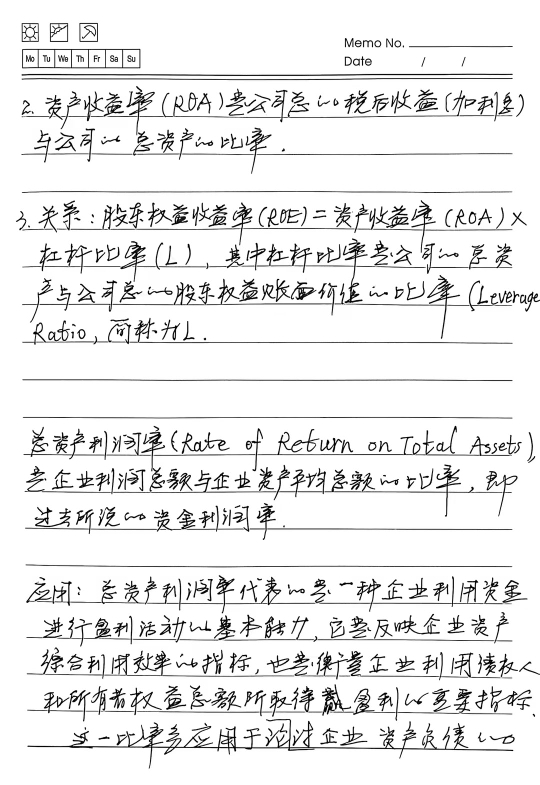 Memo No.
Mo Tu We Th Fr Sa Su
Date / /
2. 资产收益率(ROA)是公司总的税后收益(加利息)
与公司的总资产的比率.
3. 关系:股东权益收益率(ROE)=资产收益率(ROA)×
杠杆比率(L),其中杠杆比率是公司的总资
产与公司总的股东权益账面价值的比率(Leverage
Ratio,简称为L.
总资产利润率(Rate of Return on Total Assets)
是企业利润总额与企业资产平均总额的比率,即
过去所说的资金利润率.
应用:总资产利润率代表的是一种企业利用资金
进行盈利活动的基本能力,它是反映企业资产
综合利用效率的指标,也是衡量企业利用债权人
和所有者权益总额所取得盈利的重要指标.
这一比率多应用于论讨企业资产负债的